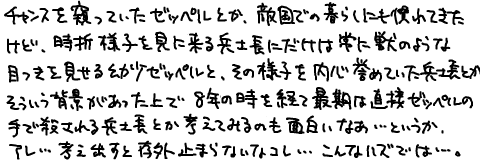 チャンスを窺っていたゼッペルとか、敵国での暮らしにも慣れてきた
けど、時折様子を見に来る兵士長にだけは常に獣のような
目つきを見せる幼少ゼッペルと、その様子を内心誉めていた兵士長とか
そういう背景があった上で8年の時を経て最期は直接ゼッペルの
手で殺される兵士長とか考えてみるのも面白いなあ…というか、
アレ…考え出すと存外止まらないなコレ…こんなハズでは…。